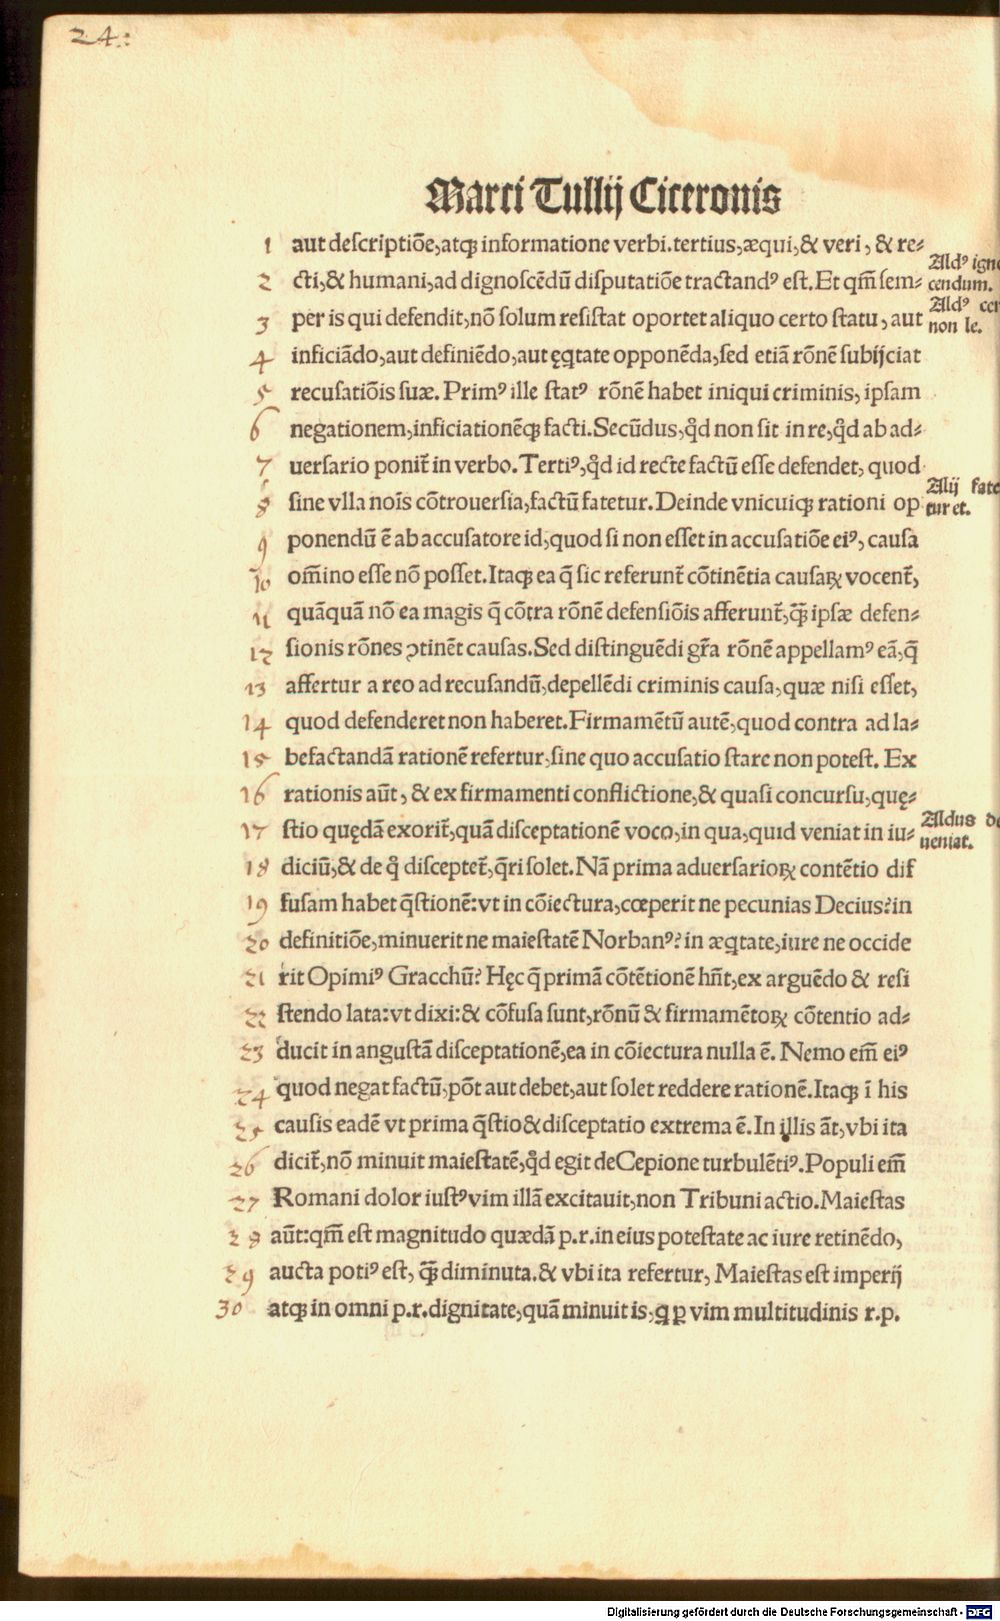 24:
Marci Tullij Ciceronis
1 aut descriptiõe,atqꝫ informatione verbi.tertius,æqui,& veri, & re⸗
Aldꝰ igno
2 cti,& humani,ad dignoscẽdũ disputatiõe tractandꝰ est.Et qm̃ sem⸗
cendum.
Aldꝰ cer
3 per is qui defendit,nõ solum resistat oportet aliquo certo statu, aut
non le.
4 inficiãdo,aut definiẽdo,aut ęꝗtate opponẽda,sed etiã rõnẽ subijciat
5 recusatiõis suæ. Primꝰ ille statꝰ rõnẽ habet iniqui criminis, ipsam
6 negationem,inficiationẽqꝫ facti.Secũdus,qd̃ non sit in re,qd̃ ab ad⸗
7 uersario ponit̃ in verbo.Tertiꝰ,qd̃ id recte factũ esse defendet, quod
Alij fate
8 sine vlla nois̃ cõtrouersia,factũ fatetur.Deinde vnicuiqꝫ rationi op
tur et.
9 ponendũ ẽ ab accusatore id,quod si non esset in accusatiõe eiꝰ, causa
10 om̃ino esse nõ posset.Itaqꝫ ea q̃ sic referunt̃ cõtinẽtia causaꝝ vocent̃,
11 quãquã nõ ea magis q̃ cõtra rõnẽ defensiõis afferunt̃,qꝫ̃ ipsæ defen⸗
12 sionis rõnes ꝯtinẽt causas.Sed distinguẽdi gr̃a rõnẽ appellamꝰ eã,q̃
13 affertur a reo ad recusandũ,depellẽdi criminis causa, quæ nisi esset,
14 quod defenderet non haberet.Firmamẽtũ autẽ,quod contra ad la⸗
15 befactandã rationẽ refertur,sine quo accusatio stare non potest. Ex
16 rationis aũt, & ex firmamenti conflictione,& quasi concursu,quę⸗
Aldus de
17 stio quędã exorit̃,quã disceptationẽ voco,in qua,quid veniat in iu⸗
ueniat.
18 diciũ,& de q̊ disceptet̃,q̃ri solet.Nã prima adversarioꝝ contẽtio dif
19 fusam habet q̃stionẽ:vt in cõiectura,cœperit ne pecunias Decius?in
20 definitiõe,minuerit ne maiestatẽ Norbanꝰ?in æꝗtate,iure ne occide
21 rit Opimiꝰ Gracchũ? Hęc q̃ primã cõtẽtionẽ hñt,ex arguẽdo & resi
22 stendo lata:vt dixi:& cõfusa sunt,rõnũ & firmamẽtoꝝ cõtentio ad⸗
23 ducit in angustã disceptationẽ,ea in cõiectura nulla ẽ. Nemo em̃ eiꝰ
24 quod negat factũ,põt aut debet,aut solet reddere rationẽ.Itaqꝫ ĩ his
25 causis eadẽ vt prima q̃stio & disceptatio extrema ẽ.In illis ãt,vbi ita
26 dicit̃,nõ minuit maiestatẽ,qd̃ egit de Cepione turbulẽtiꝰ.Populi em̃
27 Romani dolor iustꝰ vim illã excitauit,non Tribuni actio.Maiestas
28 aũt:qm̃ est magnitudo quædã p.r.in eius potestate ac iure retinẽdo,
29 aucta potiꝰ est, qꝫ̃ diminuta.& vbi ita refertur, Maiestas est imperij
30 atqꝫ in omni p.r.dignitate,quã minuit is,ꝗ ꝑ vim multitudinis r.p.
Digitalisierung gefördert durch die Deutsche Forschungsgemeinschaft - DFG